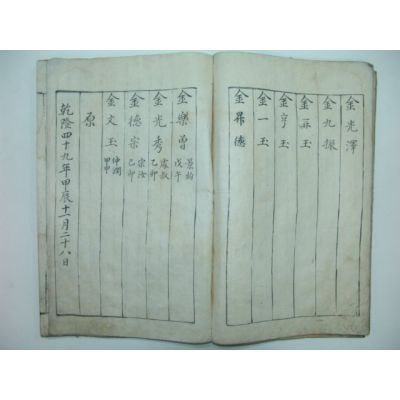 金光澤
金九振
金亓玉
金亨玉
金一玉
金昇德
金樂曾 景約 戊午
金光秀 虔叔 乙卯
金德宗 宗汝 己卯
金文玉 仲潤 甲申
原
乾隆四十九年甲辰十一月二十八日